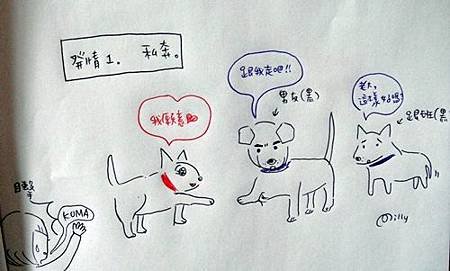 發情1. 私奔。
跟我走吧!!
男友(黑)
老大,
這樣好嗎?
我願意
跟班(黑)
目擊
KUMA
Milly